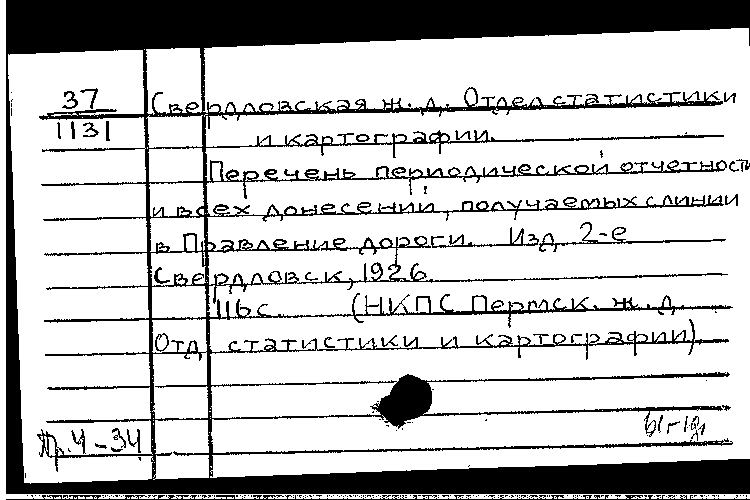 37 Свердловская ж. д. Отдел статистики
1131 и картографии.
Перечень периодической отчетности
и всех донесений, получаемых с линии
в Правление дороги. Изд. 2-е
Свердловск, 1926.
116 с. (НКПС Пермск. ж. д.
Отд. статистики и картографии).
Пр. 4-34